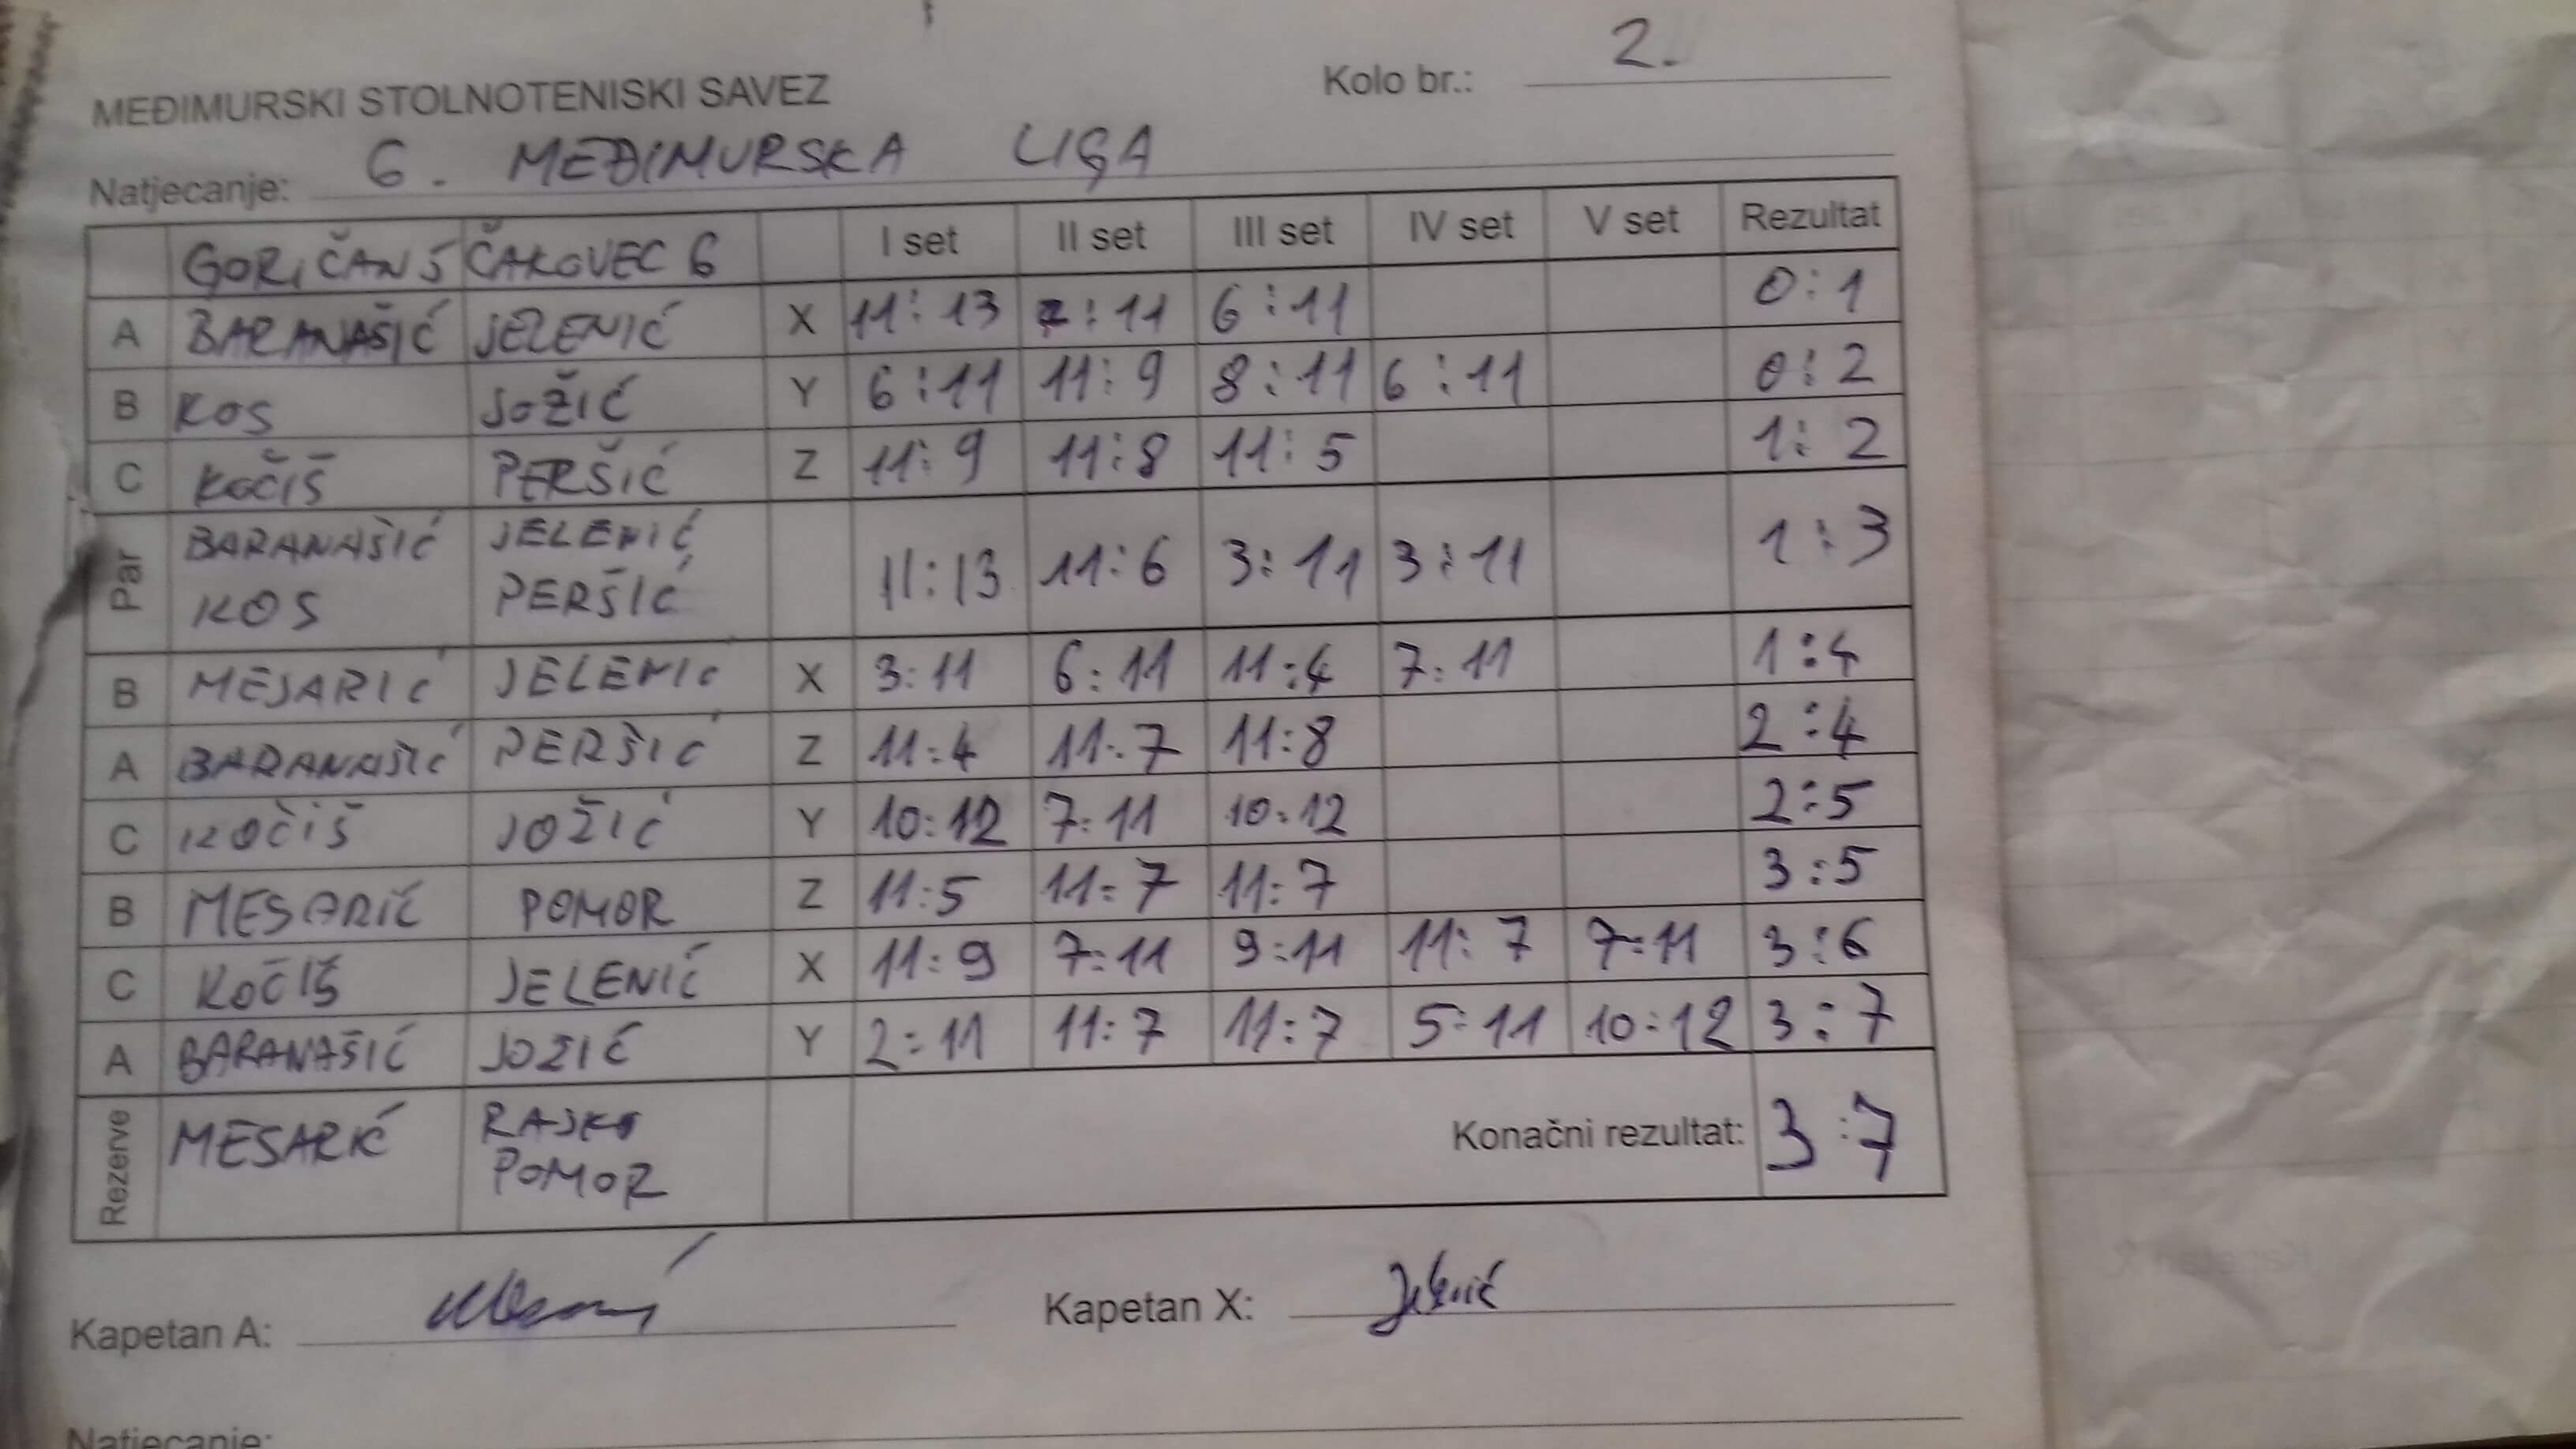 MEĐIMURSKI STOLNOTENISKI SAVEZ Kolo br.: 2.
Natjecanje: 6. MEĐIMURSKA LIGA
GORIČAN 5 ČAKOVEC 6 I set II set III set IV set V set Rezultat
A BARANAŠIĆ JELENIĆ X 11:13 7:11 6:11 0:1
B KOS JOŽIĆ Y 6:11 11:9 8:11 6:11 0:2
C KOČIŠ PERŠIĆ Z 11:9 11:8 11:5 1:2
Par BARANAŠIĆ JELENIĆ 11:13 11:6 3:11 3:11 1:3
KOS PERŠIĆ
B MESARIĆ JELENIĆ X 3:11 6:11 11:4 7:11 1:4
A BARANAŠIĆ PERŠIĆ Z 11:4 11:7 11:8 2:4
C KOČIŠ JOŽIĆ Y 10:12 7:11 10:12 2:5
B MESARIĆ POMOR Z 11:5 11:7 11:7 3:5
C KOČIŠ JELENIĆ X 11:9 7:11 9:11 11:7 7:11 3:6
A BARANAŠIĆ JOZIĆ Y 2:11 11:7 11:7 5:11 10:12 3:7
Rezerve MESARIĆ RAJKO Konačni rezultat: 3:7
POMOR
Kapetan A: Kapetan X: Jelenić
Natjecanje: